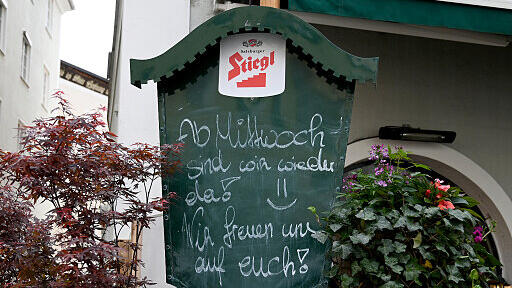 Salzburger
Stiegl
Ab Mittwoch
sind wir wieder
da!
Wir freuen uns
auf euch!